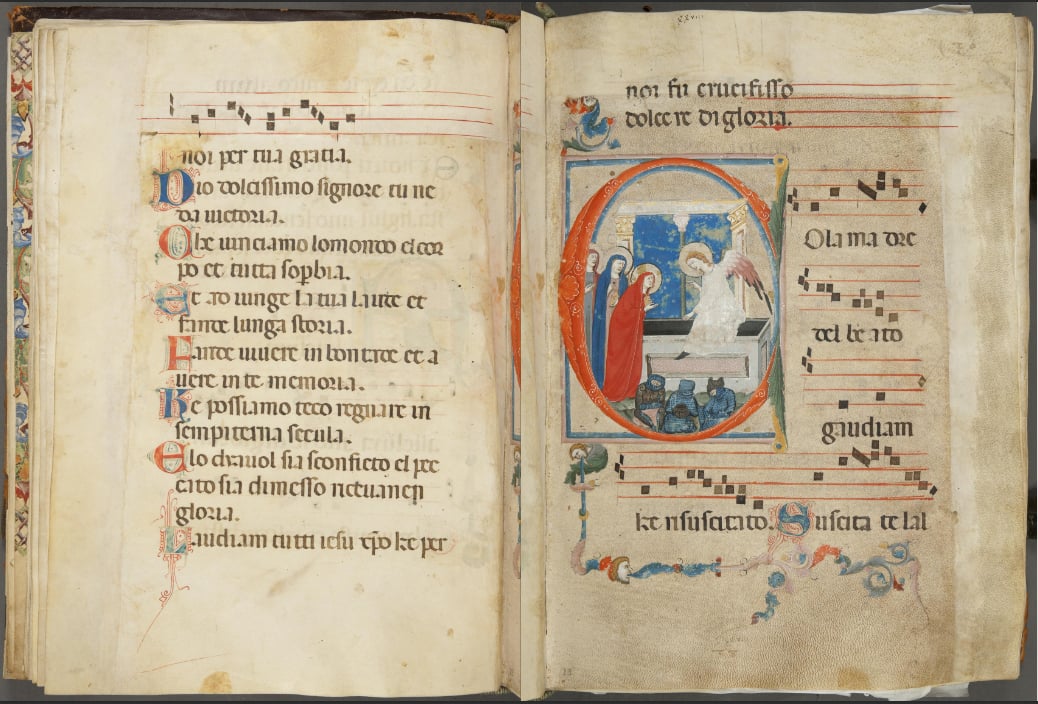 noi per tua gratia.
Dio dolcissimo signore tu ne
da uictoria.
Ke uinciamo lomondo el cor
po et tutta sopbia.
fance lunga storia.
Fance uiuere in bontade et a
uere in te memoria.
Ke possiamo teco regnare in
sempiterna secula.
Elo diauol sia sconficto el pec
cato sia dimesso
gloria.
Laudiam tutti iesu xpo ke per
xxviii
noi fu crucifisso
dolce re di gloria.
Ola ma dre
del be ato
gaudiam
ke risuscitato. Suscita te lal